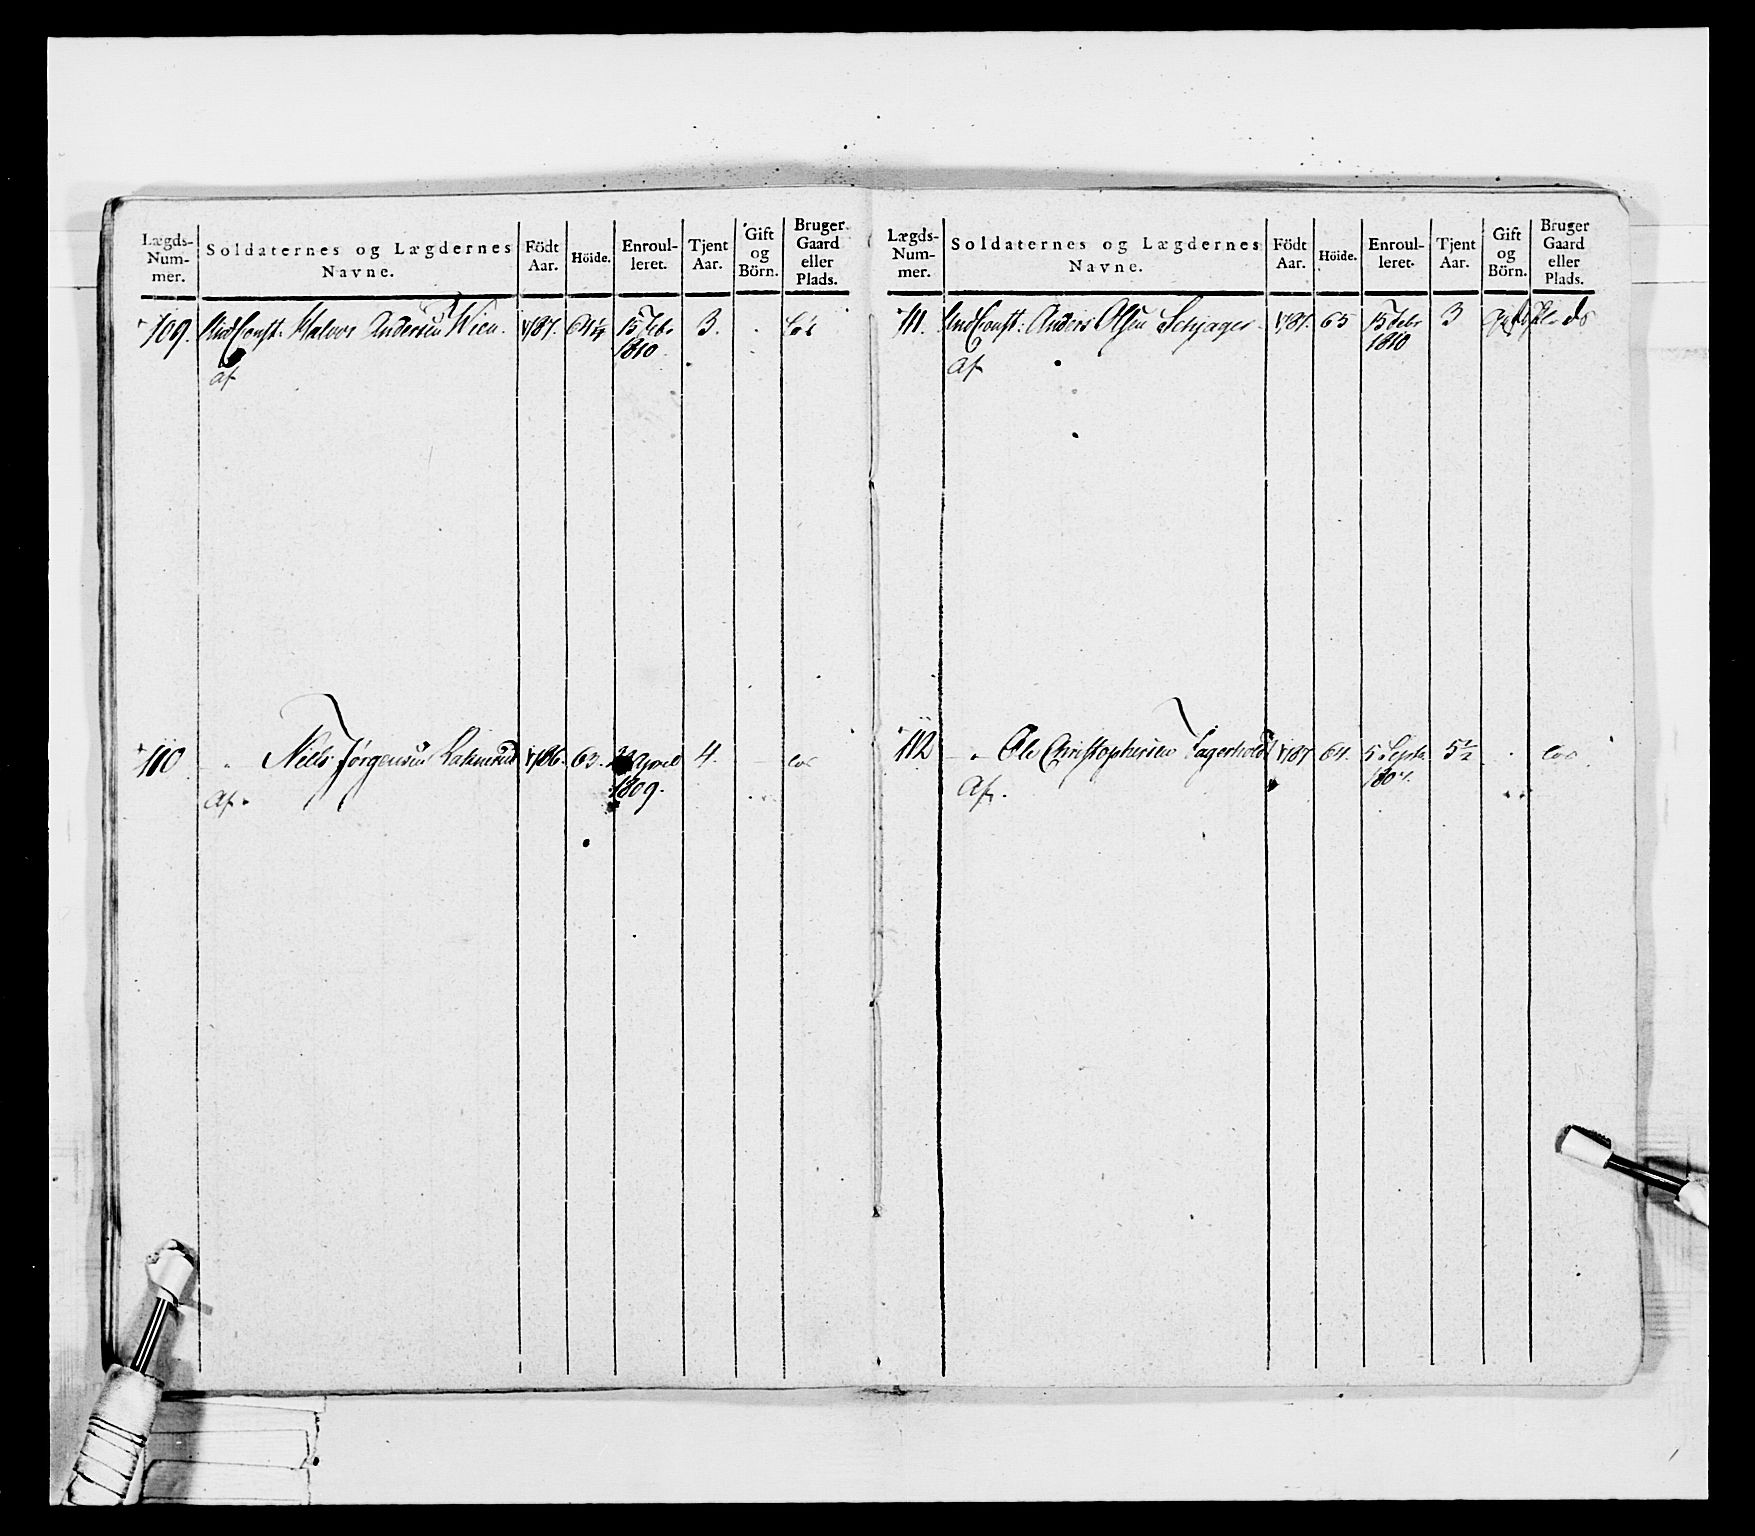 Lægds-
Num-
mer.
Soldaternes og Lægdernes
Navne.
Födt
Aar.
Höide.
Enroul-
leret.
Tjent
Aar.
Gift
og
Börn.
Bruger
Gaard
eller
Plads.
109. Halvor Andersen Wien. 1787. 64 15 Febr 3. løs
1810
af
110 Niels Jørgensen 1786. 63. April 4. løs
1809.
Af.
Lægds-
Num-
mer.
Soldaternes og Lægdernes
Navne.
Födt
Aar.
Höide.
Enroul-
leret.
Tjent
Aar.
Gift
og
Börn.
Bruger
Gaard
eller
Plads.
111. Anders Olsen 1781. 65 15 Febr 3
1810
Af
112 Ole Christophersen Fagerholdt 1787 64. 5 Septr. 5½ løs
1807.
Af.